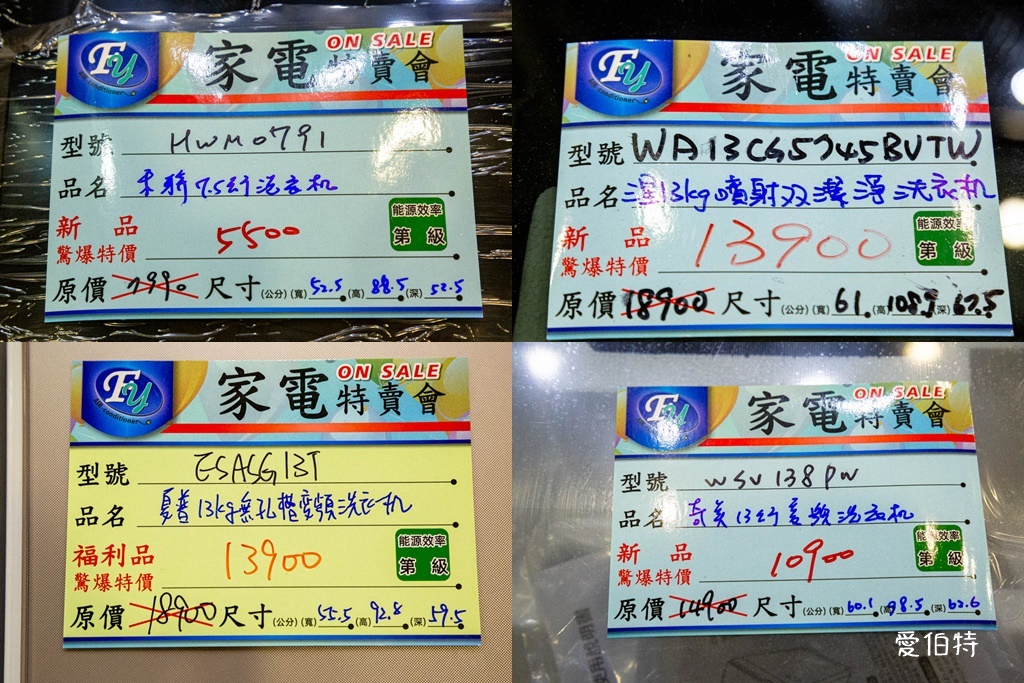 Fy
Air conditioner
家電特賣會
ON SALE
型號 HWM0791
品名 禾聯7.5公斤洗衣机
新品
驚爆特價 5500
能源效率
第 級
原價 7990 尺寸(公分)(寬)52.5(高)88.5(深)52.5
Fy
Air conditioner
家電特賣會
ON SALE
型號 WA13CG5745BVTW
品名 三星13kg噴射双潔淨洗衣机
新品
驚爆特價 13900
能源效率
第 級
原價 18900 尺寸(公分)(寬)61(高)108.9(深)62.5
Fy
Air conditioner
家電特賣會
ON SALE
型號 ESASG13T
品名 夏普13kg無孔槽變頻洗衣机
福利品
驚爆特價 13900
能源效率
第 級
原價 18900 尺寸(公分)(寬)55.5(高)92.8(深)59.5
Fy
Air conditioner
家電特賣會
ON SALE
型號 WSV138PW
品名 奇美13公斤變頻洗衣机
新品
驚爆特價 10900
能源效率
第 級
原價 14900 尺寸(公分)(寬)60.1(高)98.5(深)62.6
愛伯特